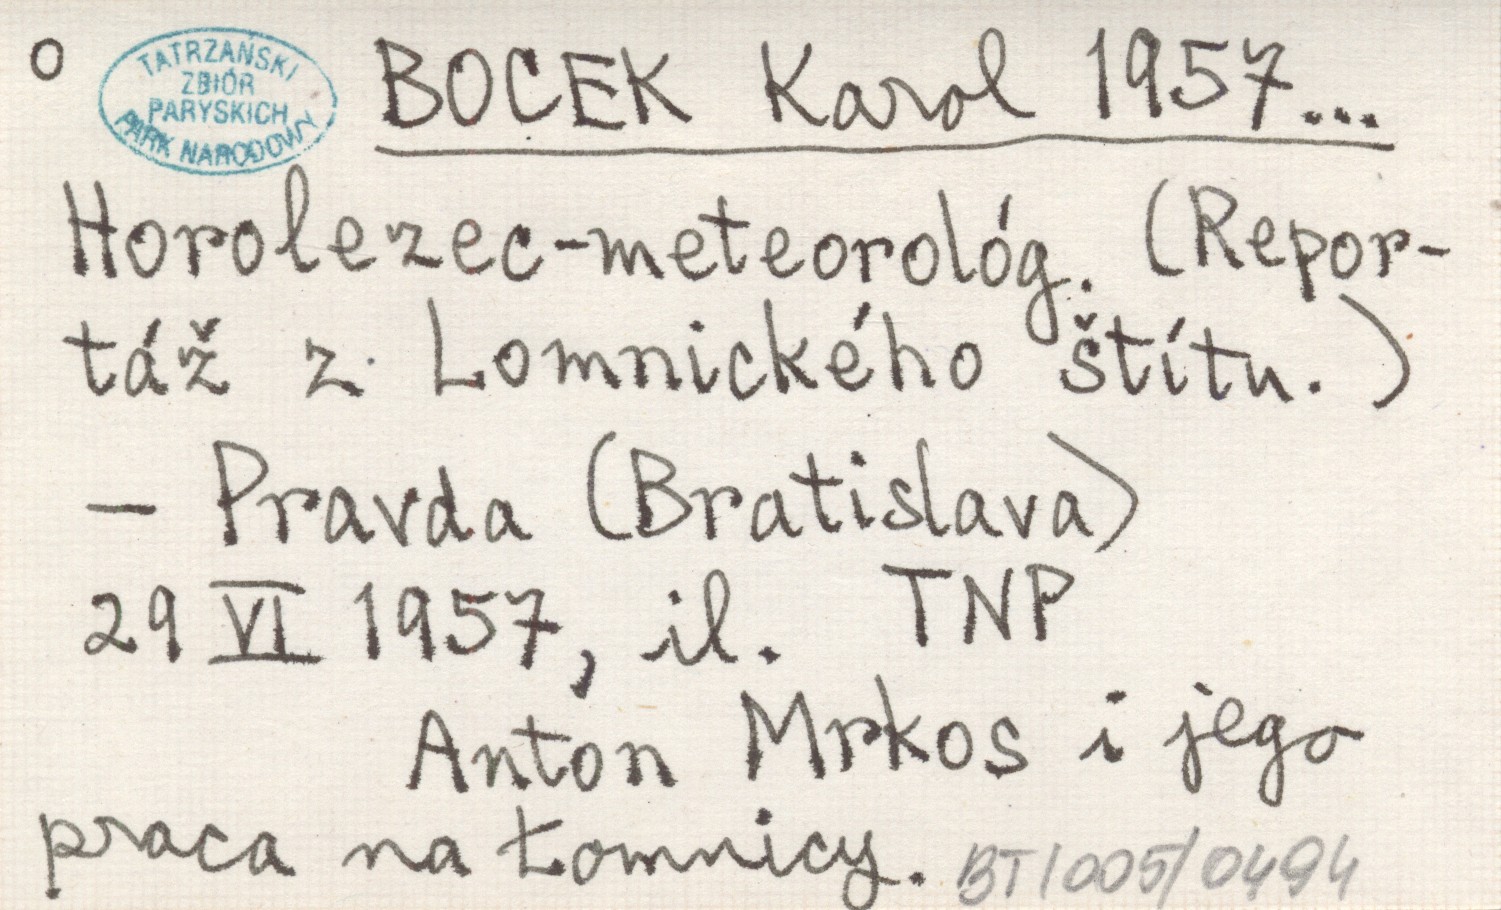 O
TATRZAŃSKI
ZBIÓR
PARYSKICH
PARK NARODOWY
BOCEK Karol 1957...
Horolezec-meteorológ. (Repor-
táž z Lomnického štítu.)
— Pravda (Bratislava)
29 VI 1957, il. TNP
Antón Mrkos i jego
praca na Łomnicy. BT/005/0494